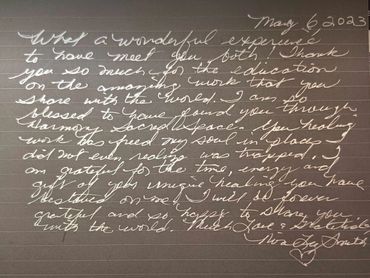 May 6 2023
What a wonderful experience
to have meet you both! Thank
you so much for the education
on the amazing work that you
share with the world. I am so
blessed to have found you through
Harmony Sacred Space. Your healing
work has freed my soul in places I
did not even realize was trapped. I
am grateful for the time, energy and
gift of your unique healing you have
bestowed on me. I will be forever
grateful and so happy to share you
with the world. Much Love & Gratitude
Smith